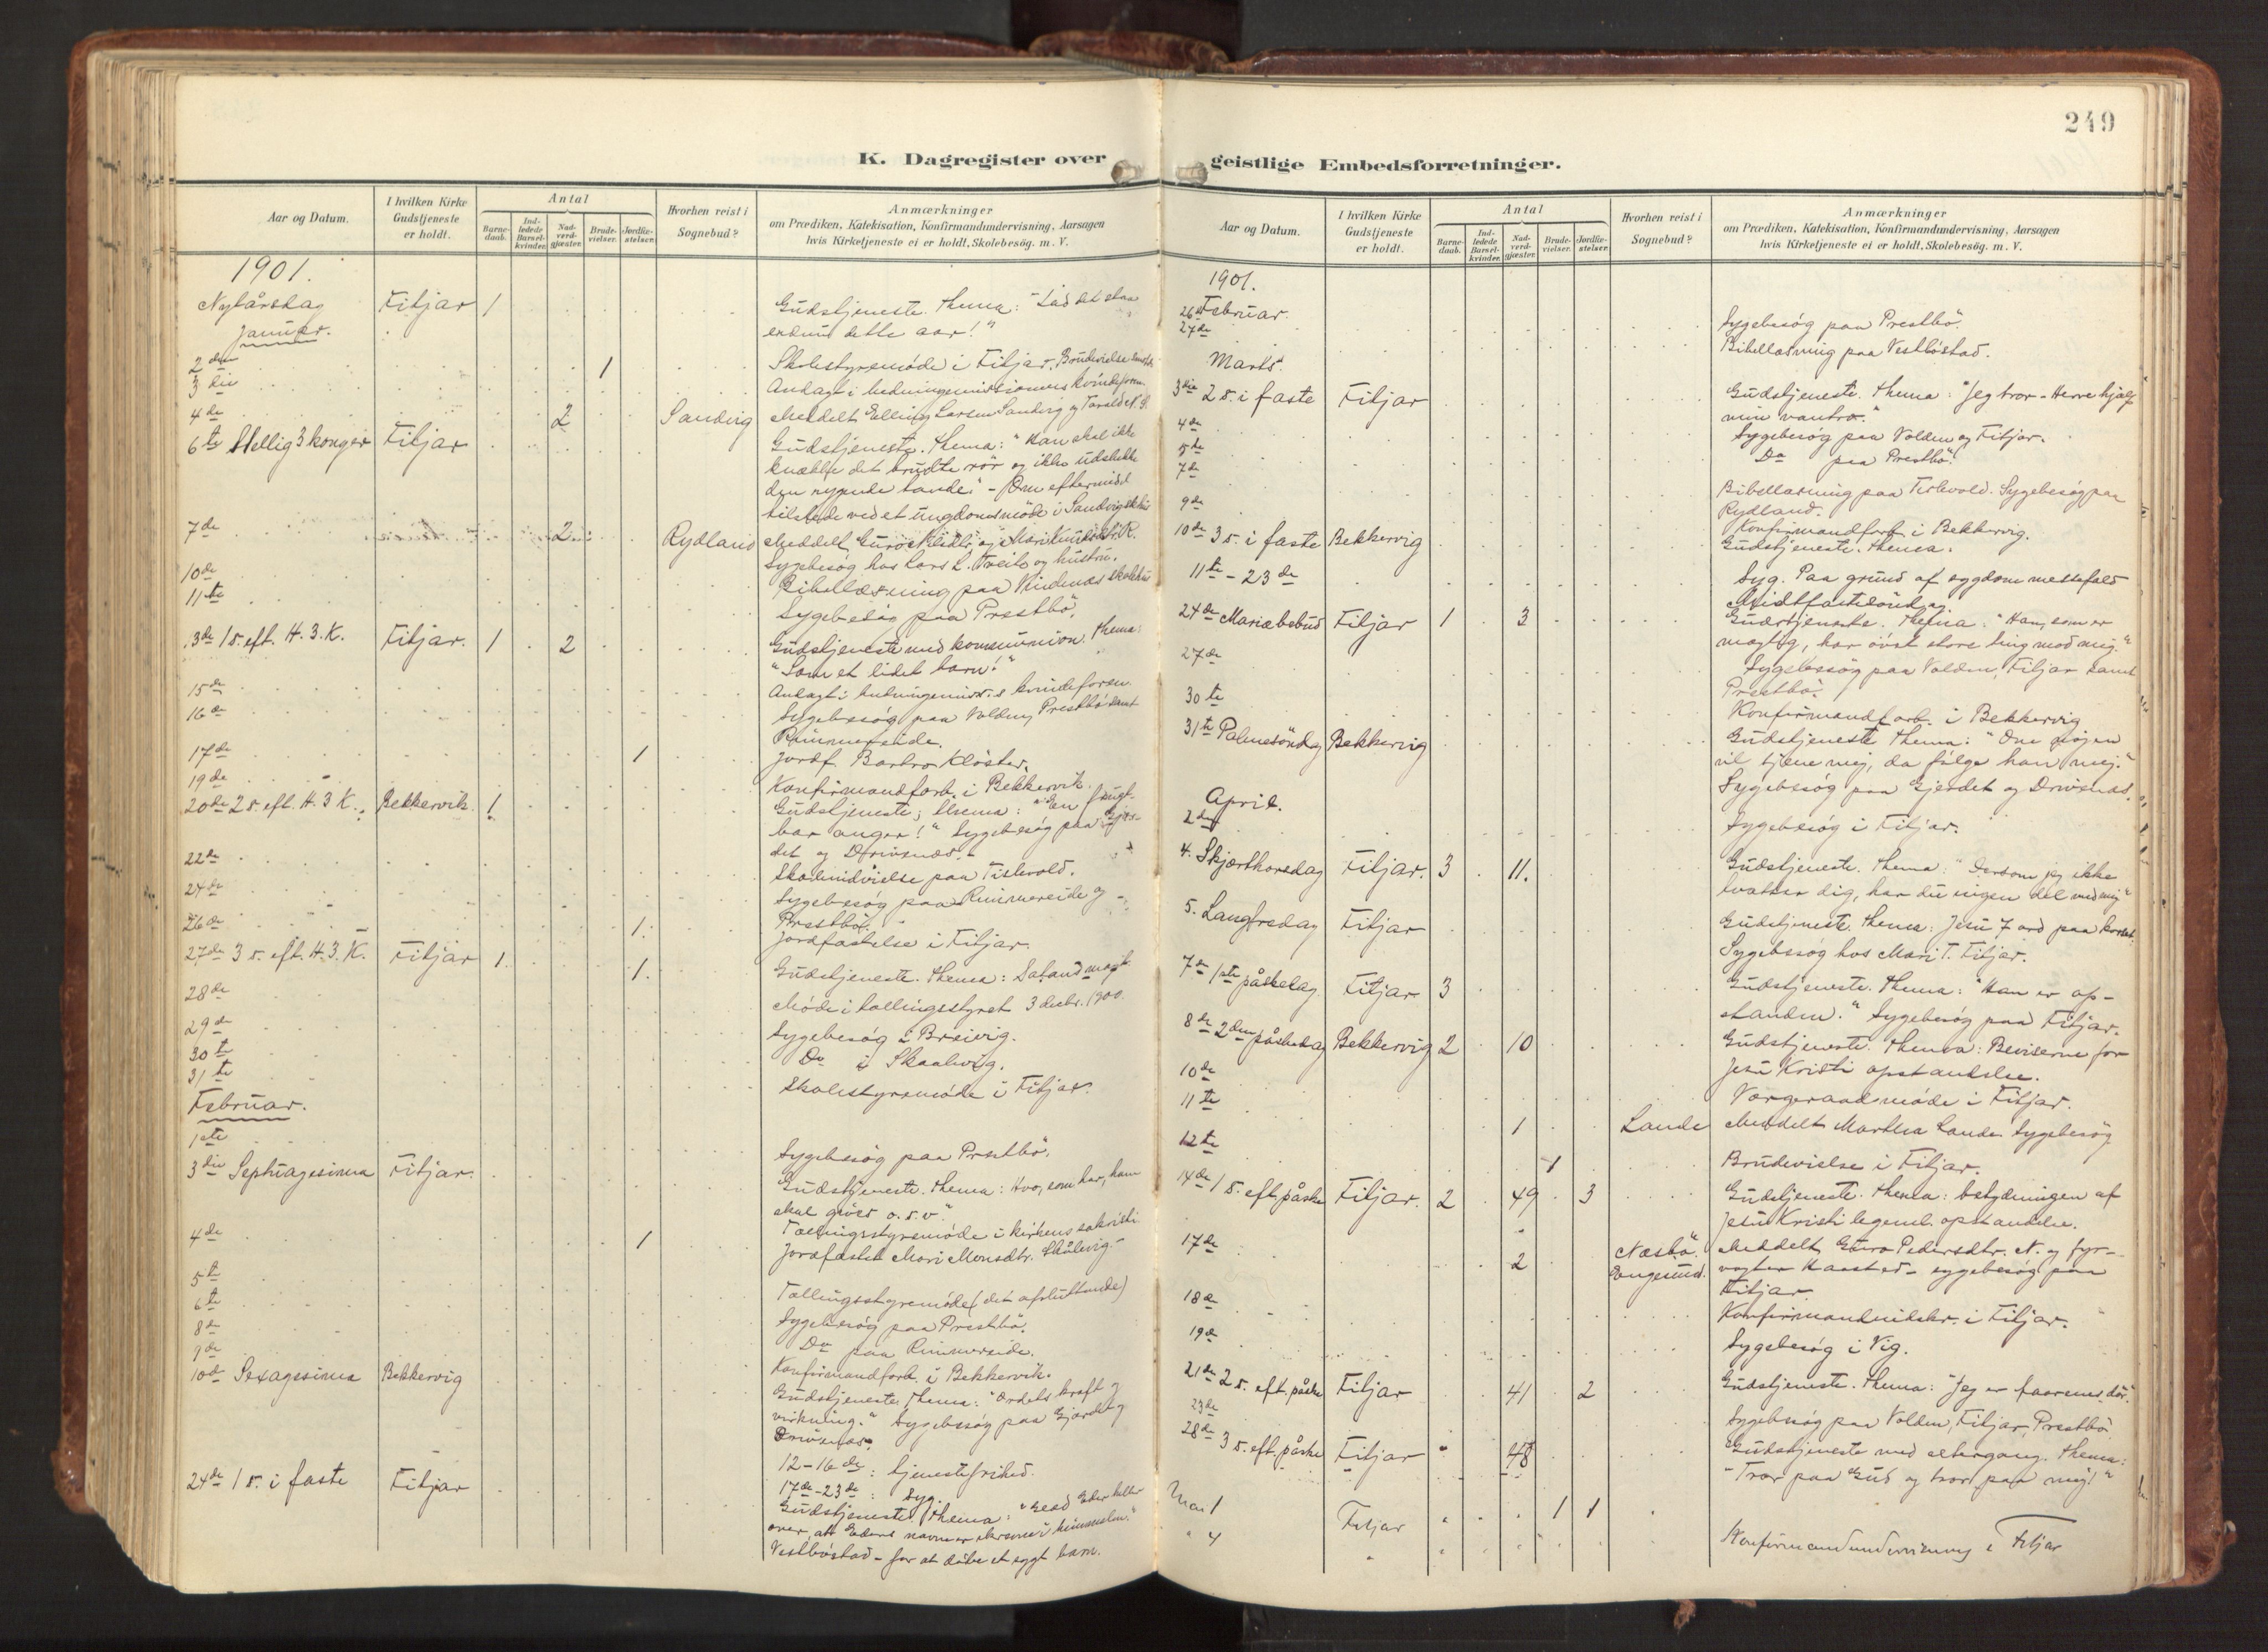 249
K. Dagregister over
Aar og Datum.
I hvilken Kirke Gudstjeneste er holdt.
Antal
Barne-daab.
Ind-ledede Barsel-kvinder.
Nad-verd-gjæster.
Brude-vielser.
Jordfæ-stelser.
Hvorhen reist i Sognebud?
Anmærkninger
om Prædiken, Katekisation, Konfirmandundervisning, Aarsagen
hvis Kirketjeneste ei er holdt, Skolebesög. m. V.
1901.
Nytårsdag Fitjar 1 Gudstjeneste. Thema: "Lad det staa
Januar. endnu dette aar!"
2den 1 Skolestyremöde i Fitjar. Brudevielse
3die Andagt i hedningemissionens kvindeforen.
4de 2 Sandvig Meddelt Elling Larsen Sandvig og
6te Hellig 3 konger Fitjar Gudstjeneste. Thema: "Han skal ikke
knække det brudte rör og ikke udslukke
den rygende tande." - Om eftermidd.
tilstede ved et ungdomsmöde i Sandvig
7de 2 Rydland Meddelt
10de Sygebesög hos Lars L. Tveit og hustru.
11te Bibellæsning paa Vindenæs skolehus
Sygebesög paa Prestbö.
13de 1 s. eft. H. 3. K. Fitjar. 1 2 Gudstjeneste med kommunion. Thema:
"Som et lidet barn!"
15de Andagt i hedningemiss.s kvindeforen.
16de Sygebesög paa Volden, Prestbö samt
Rimmereide.
17de 1 Jordf. Barbro Kloster.
19de Konfirmandforb. i Bekkervik.
20de 2 s. eft. H. 3 K. Bekkervik. 1 Gudstjeneste; Thema: "En frugt-
bar anger!" Sygebesög paa Gjer-
det og Drivenæs.
22de Skoleindvielse paa Tislevold.
24de Sygebesög paa Rimmereide og
Prestbö.
26de 1. Jordfæstelse i Fitjar.
27de 3 s. eft. H. 3. K. Fitjar 1. 1. Gudstjeneste. Thema: Satans magt.
28de Möde i tællingsstyret 3 decbr. 1900.
29de Sygebesög i Breivig.
30te Do i Skaalevig.
31te Skolestyremöde i Fitjar.
Februar.
1ste Sygebesög paa Prestbö.
3die Septuagesima Fitjar. Gudstjeneste. Thema: Hvo, som har, ham
skal gives o.s.v."
4de 1 Tællingsstyremöde i kirkens sakristi
Jordfæstet Mari Monsdtr. Skålevig.
5te Tællingsstyremöde (det afsluttende)
6te Sygebesög paa Prestbö.
8de Do paa Rimmereide.
9de Konfirmandforb. i Bekkervik.
10de Sexagesima Bekkervig Gudstjeneste Thema: "Ordets kraft og
virkning." Sygebesög paa Gjerdet og
Drivenæs.
12-16de: tjenestefrihed.
17de-23de: Syg.
24de 1 s. i faste Fitjar Gudstjeneste. Thema: "Glæd Eder heller
over, at Eders navne er skrevne i himmelen."
Vestböstad - for at döbe et sygt barn.
geistlige Embedsforretninger.
Aar og Datum.
I hvilken Kirke Gudstjeneste er holdt.
Antal
Barne-daab.
Ind-ledede Barsel-kvinder.
Nad-verd-gjæster.
Brude-vielser.
Jordfæ-stelser.
Hvorhen reist i Sognebud?
Anmærkninger
om Prædiken, Katekisation, Konfirmandundervisning, Aarsagen
hvis Kirketjeneste ei er holdt, Skolebesög. m. V.
1901.
26de Februar. Sygebesög paa Prestbö.
27de Bibellæsning paa Vestböstad.
Marts.
3die 2 s. i faste Fitjar Gudstjeneste. Thema: "Jeg tror - Herre hjælp
min vantro."
4de Sygebesög paa Volden og Fitjar.
5de Do paa Prestbö.
7de Bibellæsning paa Tislevold. Sygebesög paa
Rydland.
9de Konfirmandforb. i Bekkervig.
10de 3 s. i faste Bekkervig Gudstjeneste. Thema.
11te - 23de Syg. Paa grund af sygdom messefald
Midtfastesöndag.
24de Mariæ bebud Fitjar 1 3 Gudstjeneste. Thema: "Han, som er
mægtig, har övet store ting mod mig."
27de Sygebesög paa Volden, Fitjar samt
Prestbö.
30te Konfirmandforb. i Bekkervig
31te Palmesöndag Bekkervig Gudstjeneste Thema: "Om nogen
vil tjene mig, da fölge han mig."
Sygebesög paa Gjerdet og Drivenæs.
April.
2den Sygebesög i Fitjar.
4. Skjærthorsdag Fitjar. 3 11. Gudstjeneste. Thema: "Dersom jeg ikke
tvætter dig, har du ingen del med mig"
5. Langfredag Fitjar Gudstjeneste. Thema: Jesu 7 ord paa korset.
Sygebesög hos Mari T. Fitjar.
7de 1ste påskedag Fitjar 3 Gudstjeneste. Thema: "Han er op-
standen." Sygebesög paa Fitjar.
8de 2den påskedag Bekkervig 2 10 Gudstjeneste. Thema: Beviserne for
Jesu Kristi opstandelse.
10de Vergeraadsmöde i Fitjar.
11te 1 Lande Meddelt Martha Lande. Sygebesög
12te 1 Brudevielse i Fitjar.
14de 1 s. eft. påske Fitjar. 2 49 3 Gudstjeneste. Thema: betydningen af
Jesu Kristi legeml. opstandelse.
17de 2 Næsbö. Engesund. Meddelt Guro Pedersdtr. N. og fyr-
vogter - sygebesög paa
Fitjar.
18de Konfirmandindskr. i Fitjar.
19de Sygebesög i Vig.
21de 2 s. eft. påske Fitjar 41 2 Gudstjeneste. Thema: "Jeg er faarenes dör."
23de Sygebesög paa Volden, Fitjar, Prestbö.
28de 3 s. eft. påske Fitjar " 48 Gudstjeneste med altergang. Thema:
"Tror paa Gud og tror paa mig!"
Mai 1 Fitjar 1 1
" 4 " Konfirmandundervisning i Fitjar